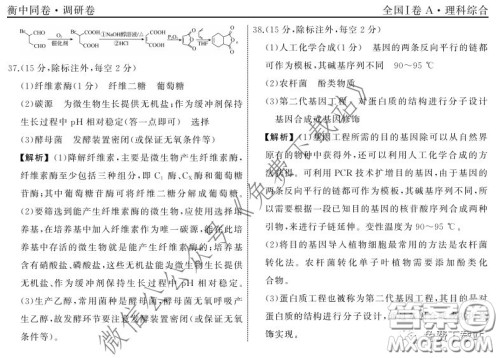 衡中同卷·调研卷
全国Ⅰ卷 A·理科综合
37.(15 分,除标注外,每空 2 分)
(1)纤维素酶(1分) 纤维二糖 葡萄糖
(2)碳源 为微生物生长提供无机盐;作为缓冲剂保持
生长过程中 pH 相对稳定(答一点即可) 选择
(3)酵母菌 发酵装置密闭(或保证无氧条件等)
【解析】(1)降解纤维素,主要是微生物产生纤维素酶,
纤维素酶至少包括三种组分,即 C₁ 酶、Cₓ酶和葡萄糖
苷酶;其中葡萄糖苷酶可将纤维二糖分解成葡萄糖.
(2)要筛选到能产生纤维素酶的微生物,应使用选择培
养基,在培养基中加入纤维素作为唯一碳源,能在此培
养基中存活的微生物就是能产生纤维素酶的;培养基
含有硝酸盐、磷酸盐,这些无机盐能为微生物提供生长
无机盐、作为缓冲剂保持生长过程中 pH 相对稳定.
(3)生产乙醇,常用菌种是酵母菌;酵母菌无氧呼吸产
生乙醇,故发酵环节要发酵装置密闭(或保证无氧条件
等).
38.(15 分,除标注外,每空 2 分)
(1)人工化学合成(1 分) 基因的两条反向平行的链都
可作为模板,其碱基序列不同 90～95 ℃
(2)农杆菌 酚类物质
(3)第二代基因工程 对蛋白质的结构进行分子设计
基因修饰或基因合成
【解析】(1)基因工程所需的目的基因除可以从自然界
原有的物种中获得外,还可以利用人工化学合成的方
法获得.可利用 PCR 技术扩增目的基因,由于基因的
两条反向平行的链都可作为模板,其碱基序列不同,所
以需要根据一段已知目的基因的核苷酸序列合成两种
引物,来进行子链延伸。变性温度为 90～95 ℃.
(2)将目的基因导入植物细胞最常用的方法是农杆菌
转化法。农杆菌转化单子叶植物需要添加酚类物质诱
导转化.
(3)蛋白质工程也被称为第二代基因工程,其目的是对
蛋白质的结构进行分子设计,
饰实现。
微信公众号《免费下载站》
答案圈